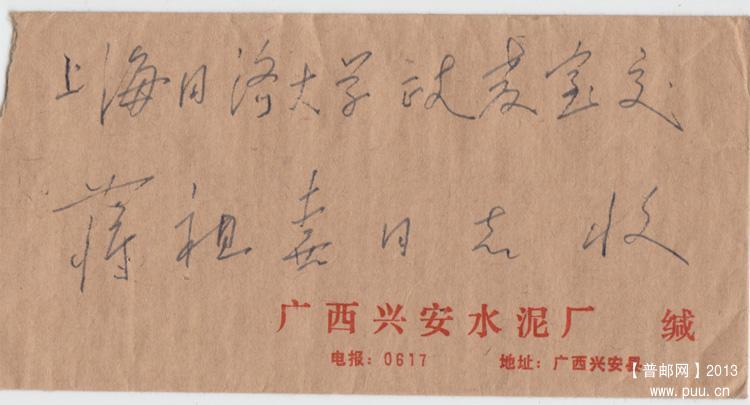 上海同济大学政教室交
蒋祖嘉同志 收
广西兴安水泥厂 缄
电报：0617 地址：广西兴安县
【普邮网】2013
www.puu.cn